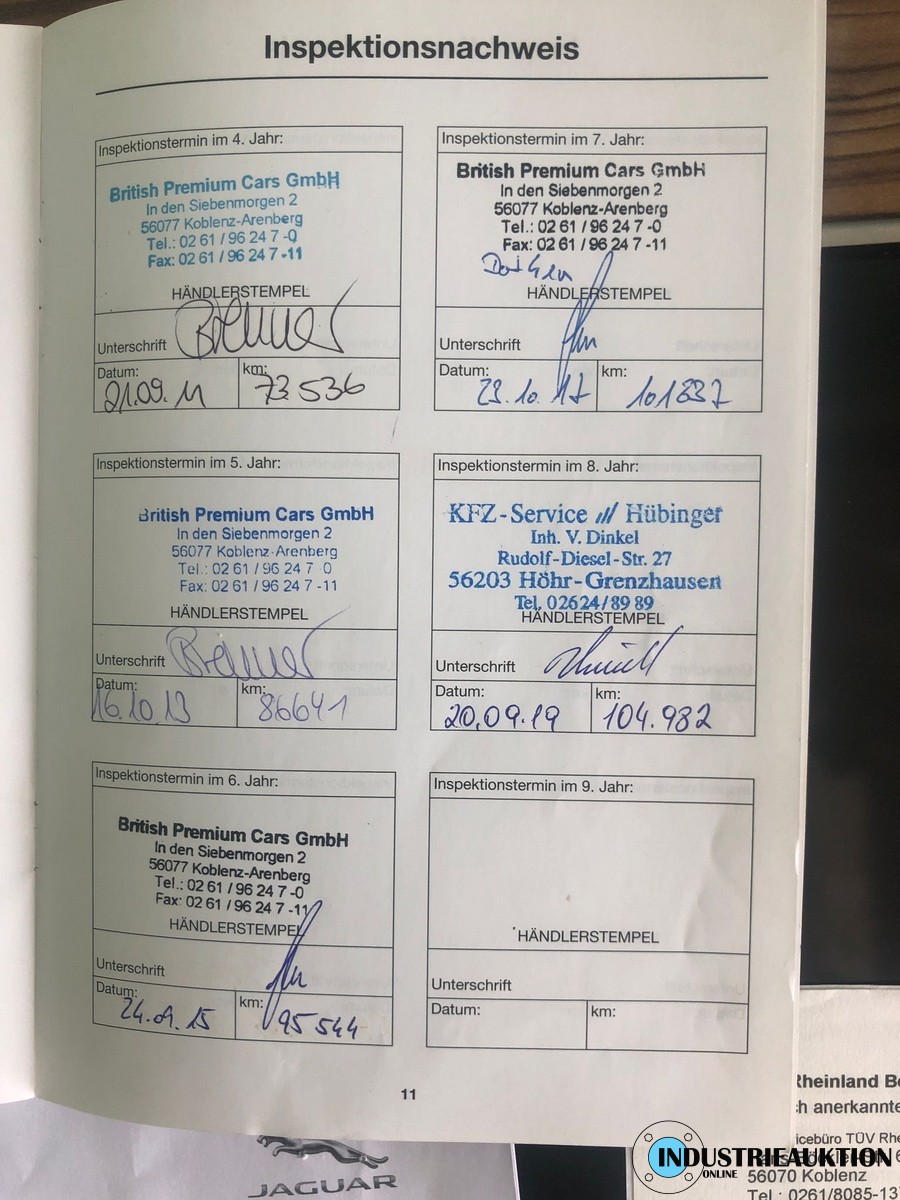 Inspektionsnachweis
Inspektionstermin im 4. Jahr:
British Premium Cars GmbH
In den Siebenmorgen 2
56077 Koblenz-Arenberg
Tel.: 02 61 / 96 24 7 -0
Fax: 02 61 / 96 24 7 -11
HÄNDLERSTEMPEL
Unterschrift
Datum: km:
21.09.11 73.536
Inspektionstermin im 5. Jahr:
British Premium Cars GmbH
In den Siebenmorgen 2
56077 Koblenz-Arenberg
Tel.: 02 61 / 96 24 7 0
Fax: 02 61 / 96 24 7 -11
HÄNDLERSTEMPEL
Unterschrift
Datum: km:
16.10.13 86641
Inspektionstermin im 6. Jahr:
British Premium Cars GmbH
In den Siebenmorgen 2
56077 Koblenz-Arenberg
Tel.: 02 61 / 96 24 7 -0
Fax: 02 61 / 96 24 7 -11
HÄNDLERSTEMPEL
Unterschrift
Datum: km:
24.09.15 95544
Inspektionstermin im 7. Jahr:
British Premium Cars GmbH
In den Siebenmorgen 2
56077 Koblenz-Arenberg
Tel.: 02 61 / 96 24 7 -0
Fax: 02 61 / 96 24 7 -11
HÄNDLERSTEMPEL
Unterschrift
Datum: km:
23.10.17 101837
Inspektionstermin im 8. Jahr:
KFZ-Service /// Hübinger
Inh. V. Dinkel
Rudolf-Diesel-Str. 27
56203 Höhr-Grenzhausen
Tel. 02624/89 89
HÄNDLERSTEMPEL
Unterschrift
Datum: km:
20.09.19 104.982
Inspektionstermin im 9. Jahr:
HÄNDLERSTEMPEL
Unterschrift
Datum: km:
11
JAGUAR
Rheinland
ch anerkannte
icebüro TÜV Rhe
56070 Koblenz
Tel.: 0261/8085-13
INDUSTRIEAUKTION
ONLINE